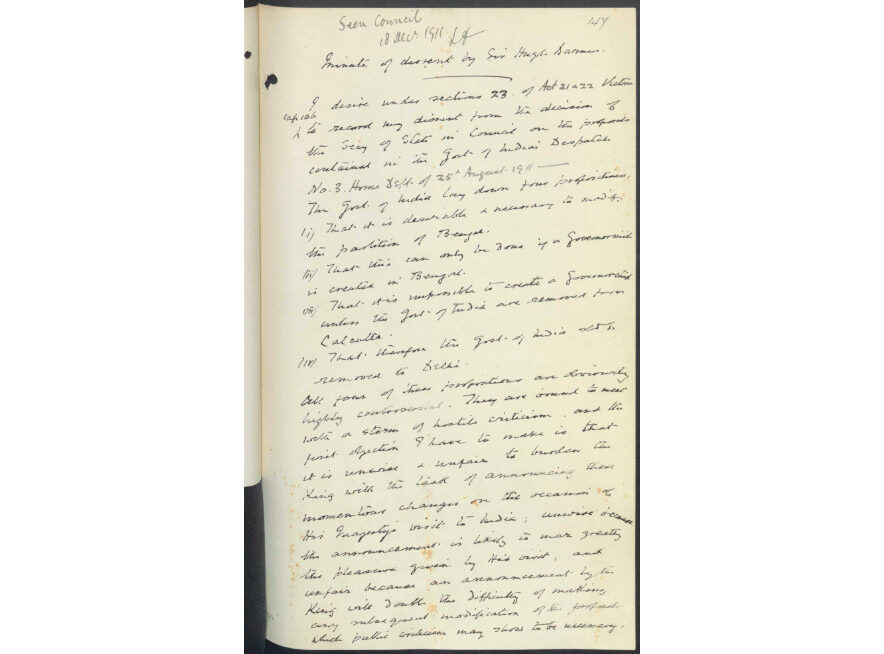 Seen Council
18 Decr 1911
147
Minute of dissent by Sir Hugh Barnes.
I desire under sections 23 of Act 21 & 22 Victoria
cap 106
to record my dissent from the decision of
the Secy of State in Council on the proposals
contained in the Govt of India's Despatch
No. 3. Home Dept. of 25th August 1911
The Govt of India lay down four propositions.
(i) That it is desirable & necessary to modify
the partition of Bengal.
(ii) That this can only be done if a Governorship
is created in Bengal.
(iii) That it is impossible to create a Governorship
unless the Govt of India are removed from
Calcutta.
(iv) That therefore the Govt of India be
removed to Delhi.
All four of these propositions are obviously
highly controversial. They are bound to meet
with a storm of hostile criticism, and the
first objection I have to make is that
it is unwise & unfair to burden the
King with the task of announcing these
momentous changes on the occasion of
His Majesty's visit to India; unwise because
the announcement is likely to mar greatly
the pleasure given by His visit, and
unfair because an announcement by the
King will double the difficulty of making
any subsequent modification of the proposals
which public criticism may show to be necessary.